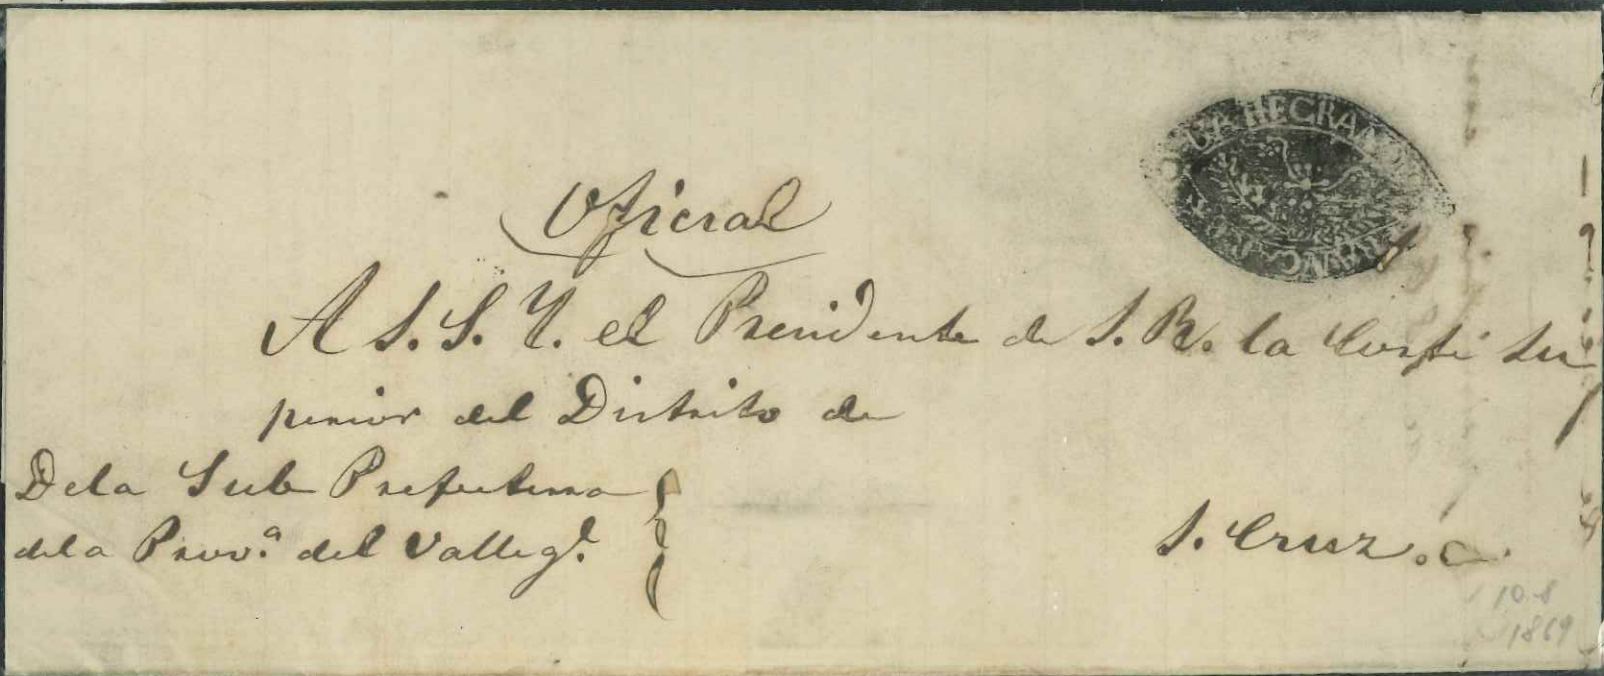 Oficial
A S. S. Y. el Presidente de S. R. la Corte Su
perior del Distrito de
De la Sub Prefectura
de la Prov.ª del Valleg.e
S. Cruz.
10-8
1869